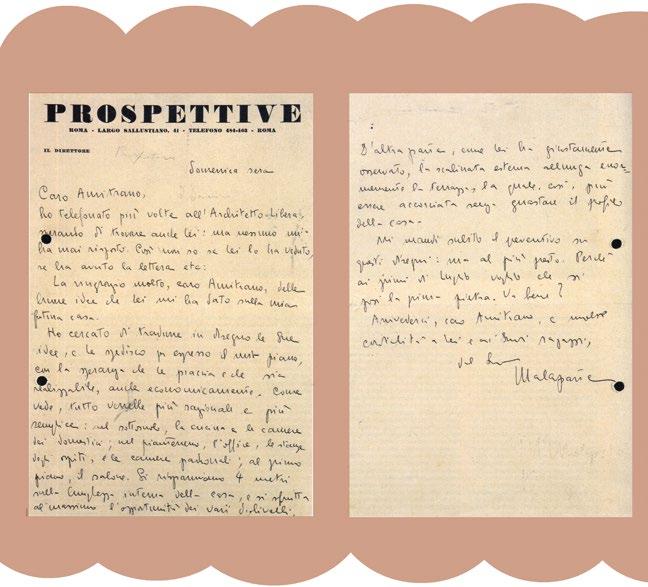 PROSPETTIVE
ROMA - LARGO SALLUSTIANO, 41 - TELEFONO 484-468 - ROMA
IL DIRETTORE
Domenica sera
Caro Amitrano,
ho telefonato più volte all'Architetto Libera,
sperando di trovare anche lei: ma nessuno mi
ha mai risposto. Così non so se lei lo ha veduto,
se ha avuto la lettera etc:
La ringrazio molto, caro Amitrano, delle
buone idee che lei mi ha dato sulla mia
futura casa.
Ho cercato di tradurre in disegno le sue
idee, e le spedisco per espresso il mio piano,
con la speranza che le piaccia e che sia
realizzabile, anche economicamente. Come
vede, tutto è più razionale e più
semplice: nel sottosuolo, la cucina e le camere
dei domestici; nel pianterreno, l'office, le stanze
degli ospiti, e le camere padronali; al primo
piano, il salone. Si risparmiano 4 metri
sulla lunghezza interna della casa, e si sfrutta
al massimo l'opportunità dei vari dislivelli.
D'altra parte, come lei ha giustamente
osservato, la scalinata esterna allunga enor-
memente la terrazza, la quale, così, può
essere accorciata senza guastare il profilo
della casa.
Mi mandi subito il preventivo su
questi disegni: ma al più presto. Perchè
ai primi di luglio voglio che si
posi la prima pietra. Va bene?
Arrivederci, caro Amitrano, e molte
cordialità a lei e ai suoi ragazzi,
dal suo
Malaparte